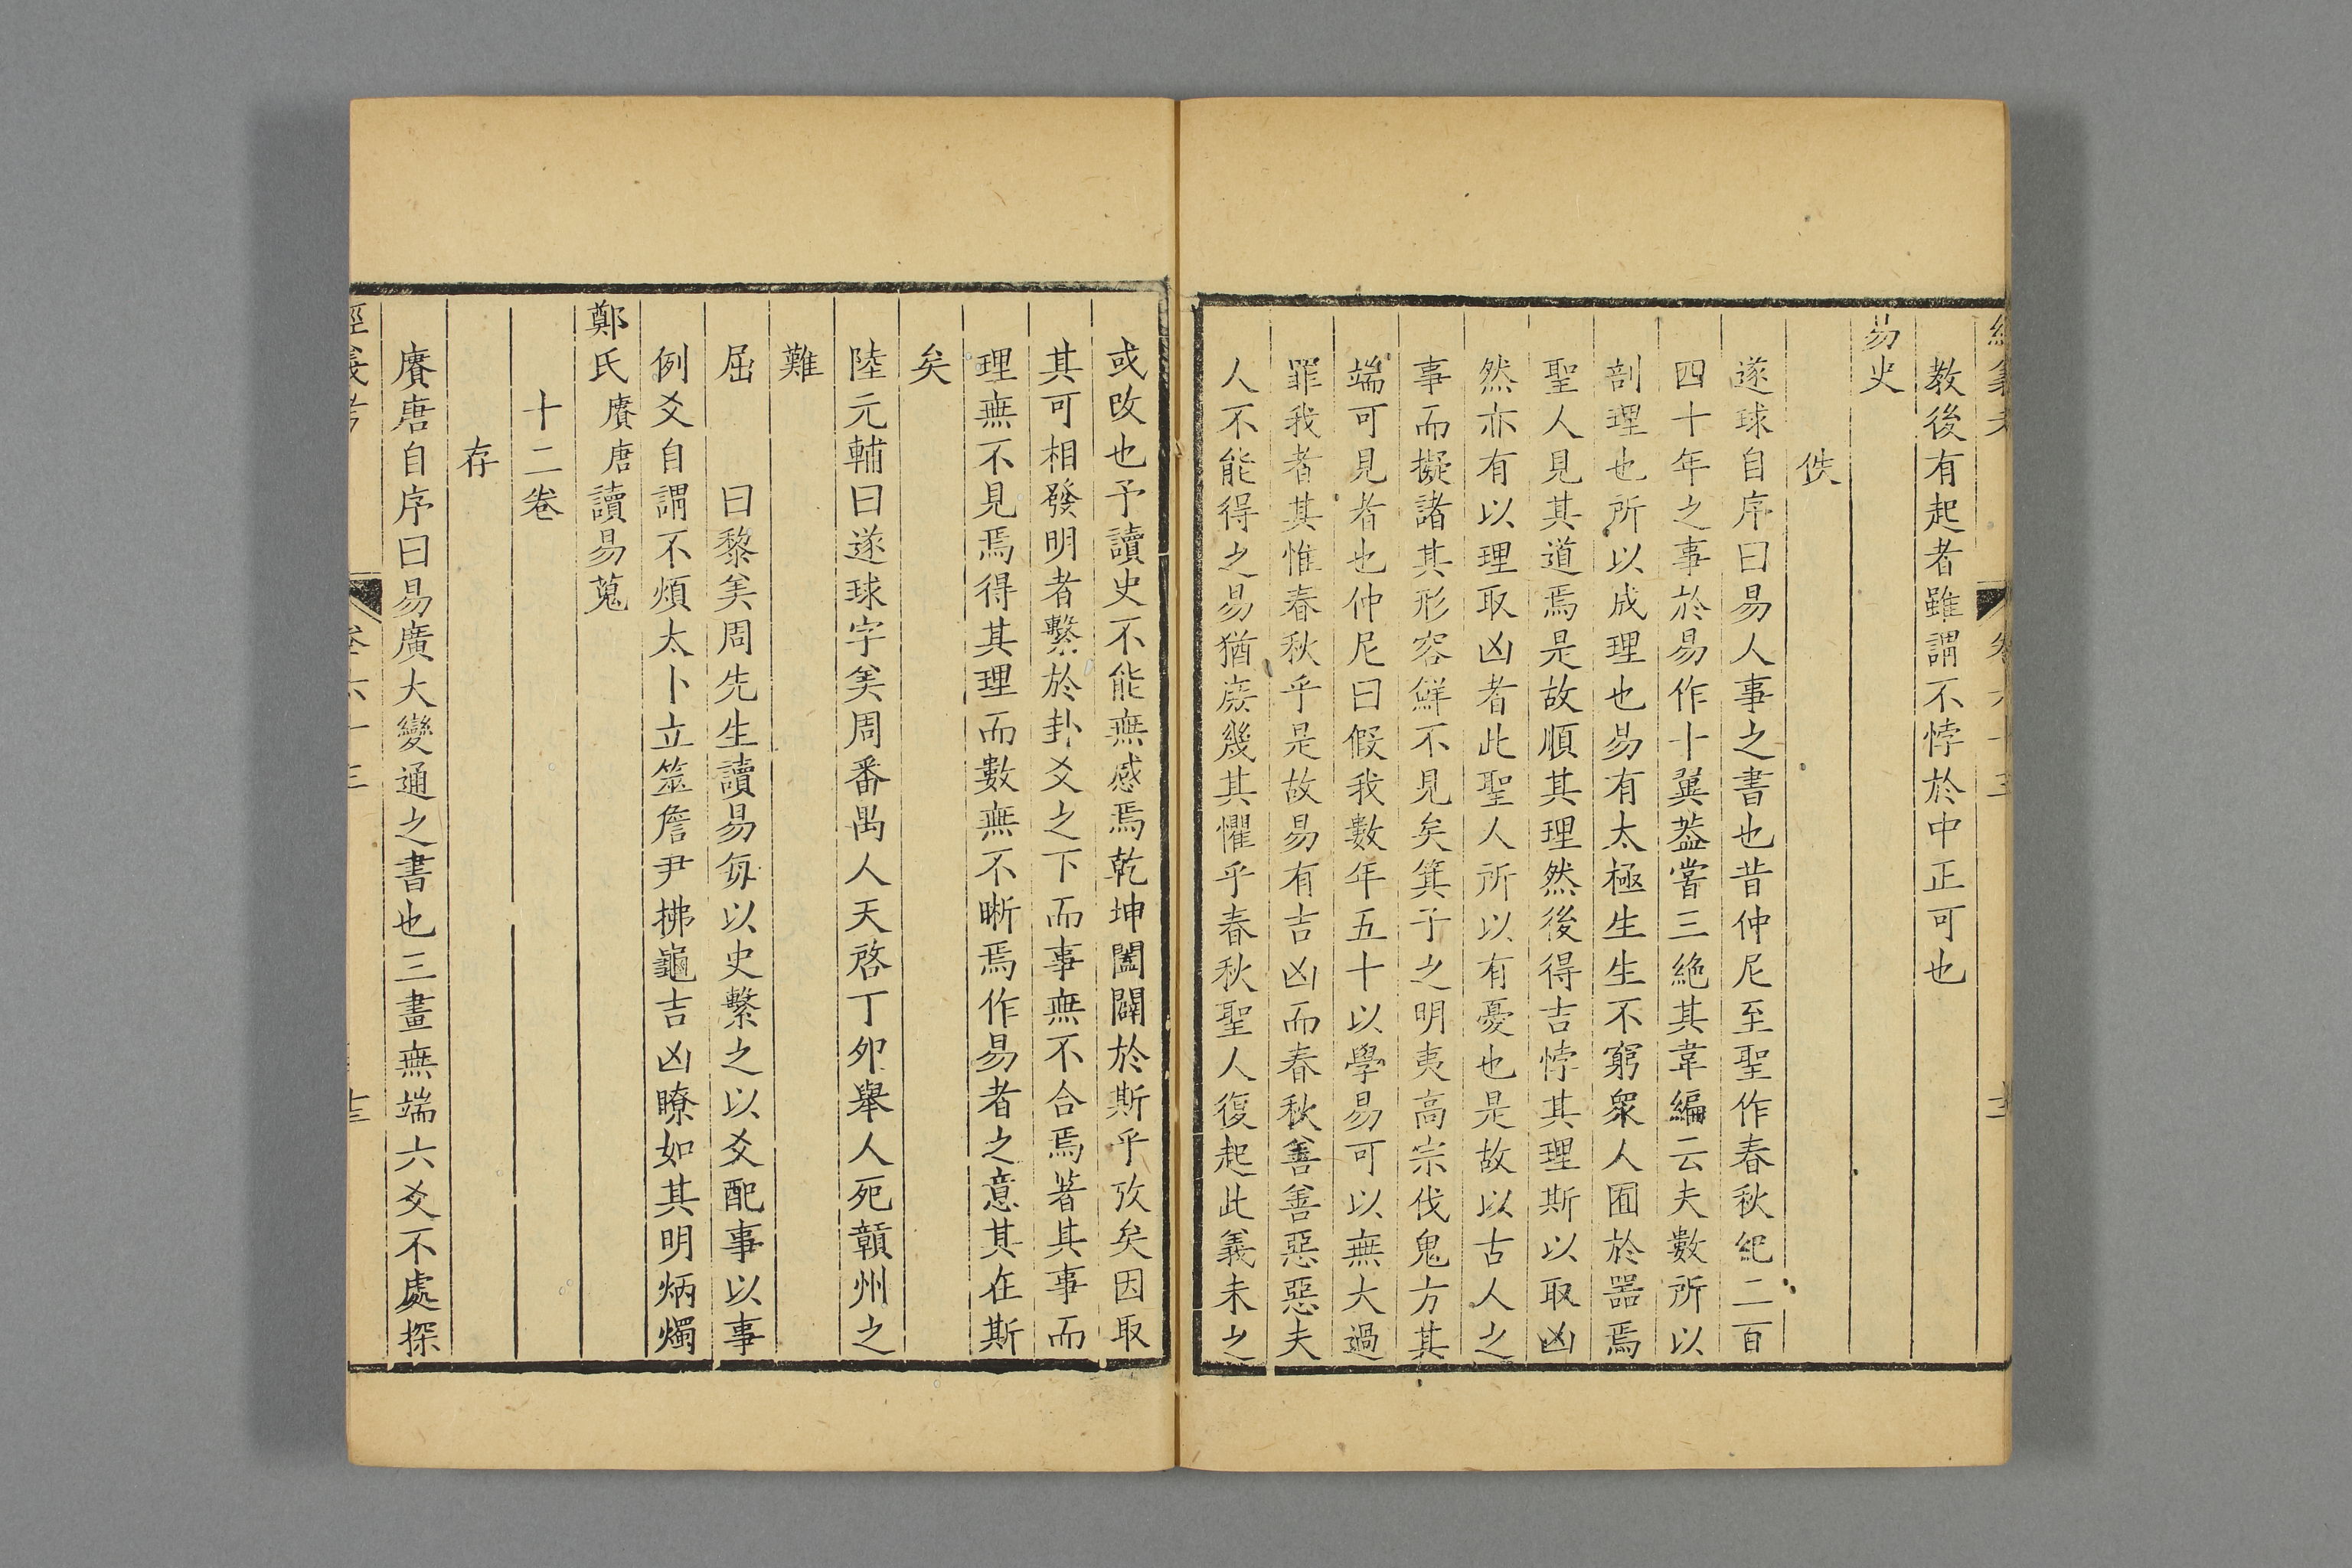 教後有起者雖謂不悖於中正可也
易史
佚
遂球自序曰易人事之書也昔仲尼至聖作春秋紀二百
四十年之事於易作十翼葢嘗三絶其韋編云夫數所以
剖理也所以成理也易有太極生生不窮衆人囿於噐焉
聖人見其道焉是故順其理然後得吉悖其理斯以取凶
然亦有以理取凶者此聖人所以有憂也是故以古人之
事而擬諸其形容鮮不見矣箕子之明夷高宗伐鬼方其
端可見者也仲尼曰假我數年五十以學易可以無大過
罪我者其惟春秋乎是故易有吉凶而春秋善善惡惡夫
人不能得之易猶庻幾其懼乎春秋聖人復起此義未之
或改也予讀史不能無感焉乾坤闔闢於斯乎攷矣因取
其可相發明者繫於卦爻之下而事無不合焉著其事而
理無不見焉得其理而數無不晰焉作易者之意其在斯
矣
陸元輔曰遂球字美周番禺人天啓丁夘舉人死贛州之
難
屈　　曰黎美周先生讀易每以史繫之以爻配事以事
例爻自謂不煩太卜立筮詹尹拂龜吉凶瞭如其明炳燭
鄭氏賡唐讀易蒐
十二卷
存
賡唐自序曰易廣大變通之書也三畫無端六爻不處探
經義考 卷六十三 十三